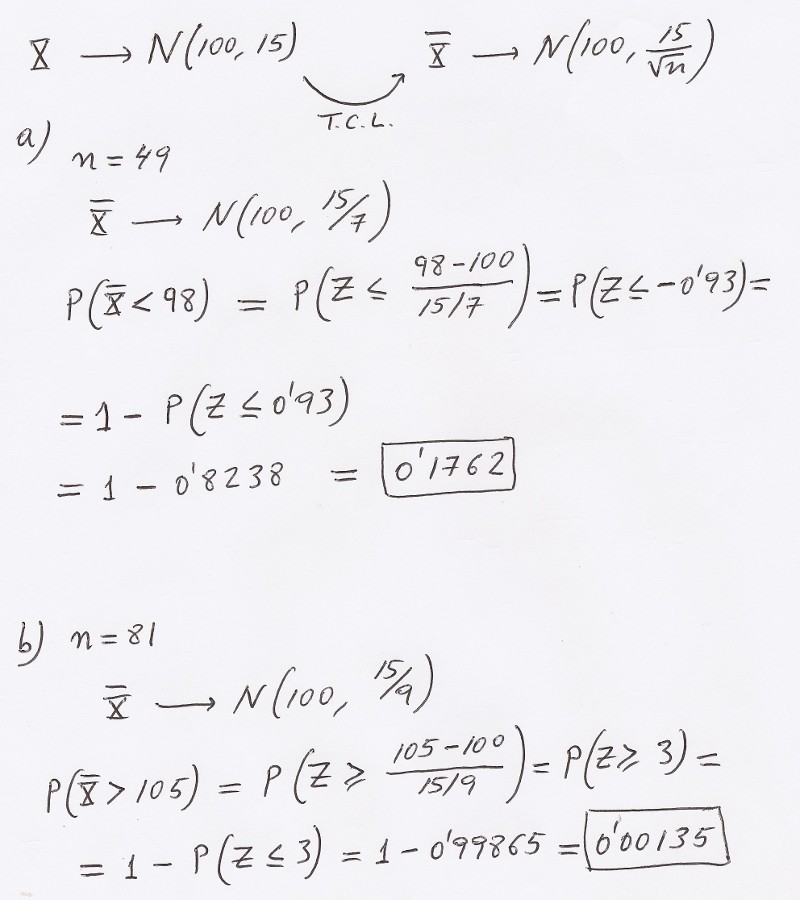 X → N(100, 15) T.C.L. X̄ → N(100, 15/√n)
a) n = 49
X̄ → N(100, 15/7)
P(X̄ < 98) = P(Z ≤ (98-100)/(15/7)) = P(Z ≤ -0'93) =
= 1 - P(Z ≤ 0'93)
= 1 - 0'8238 = 0'1762
b) n = 81
X̄ → N(100, 15/9)
P(X̄ > 105) = P(Z ≥ (105-100)/(15/9)) = P(Z ≥ 3) =
= 1 - P(Z ≤ 3) = 1 - 0'99865 = 0'00135